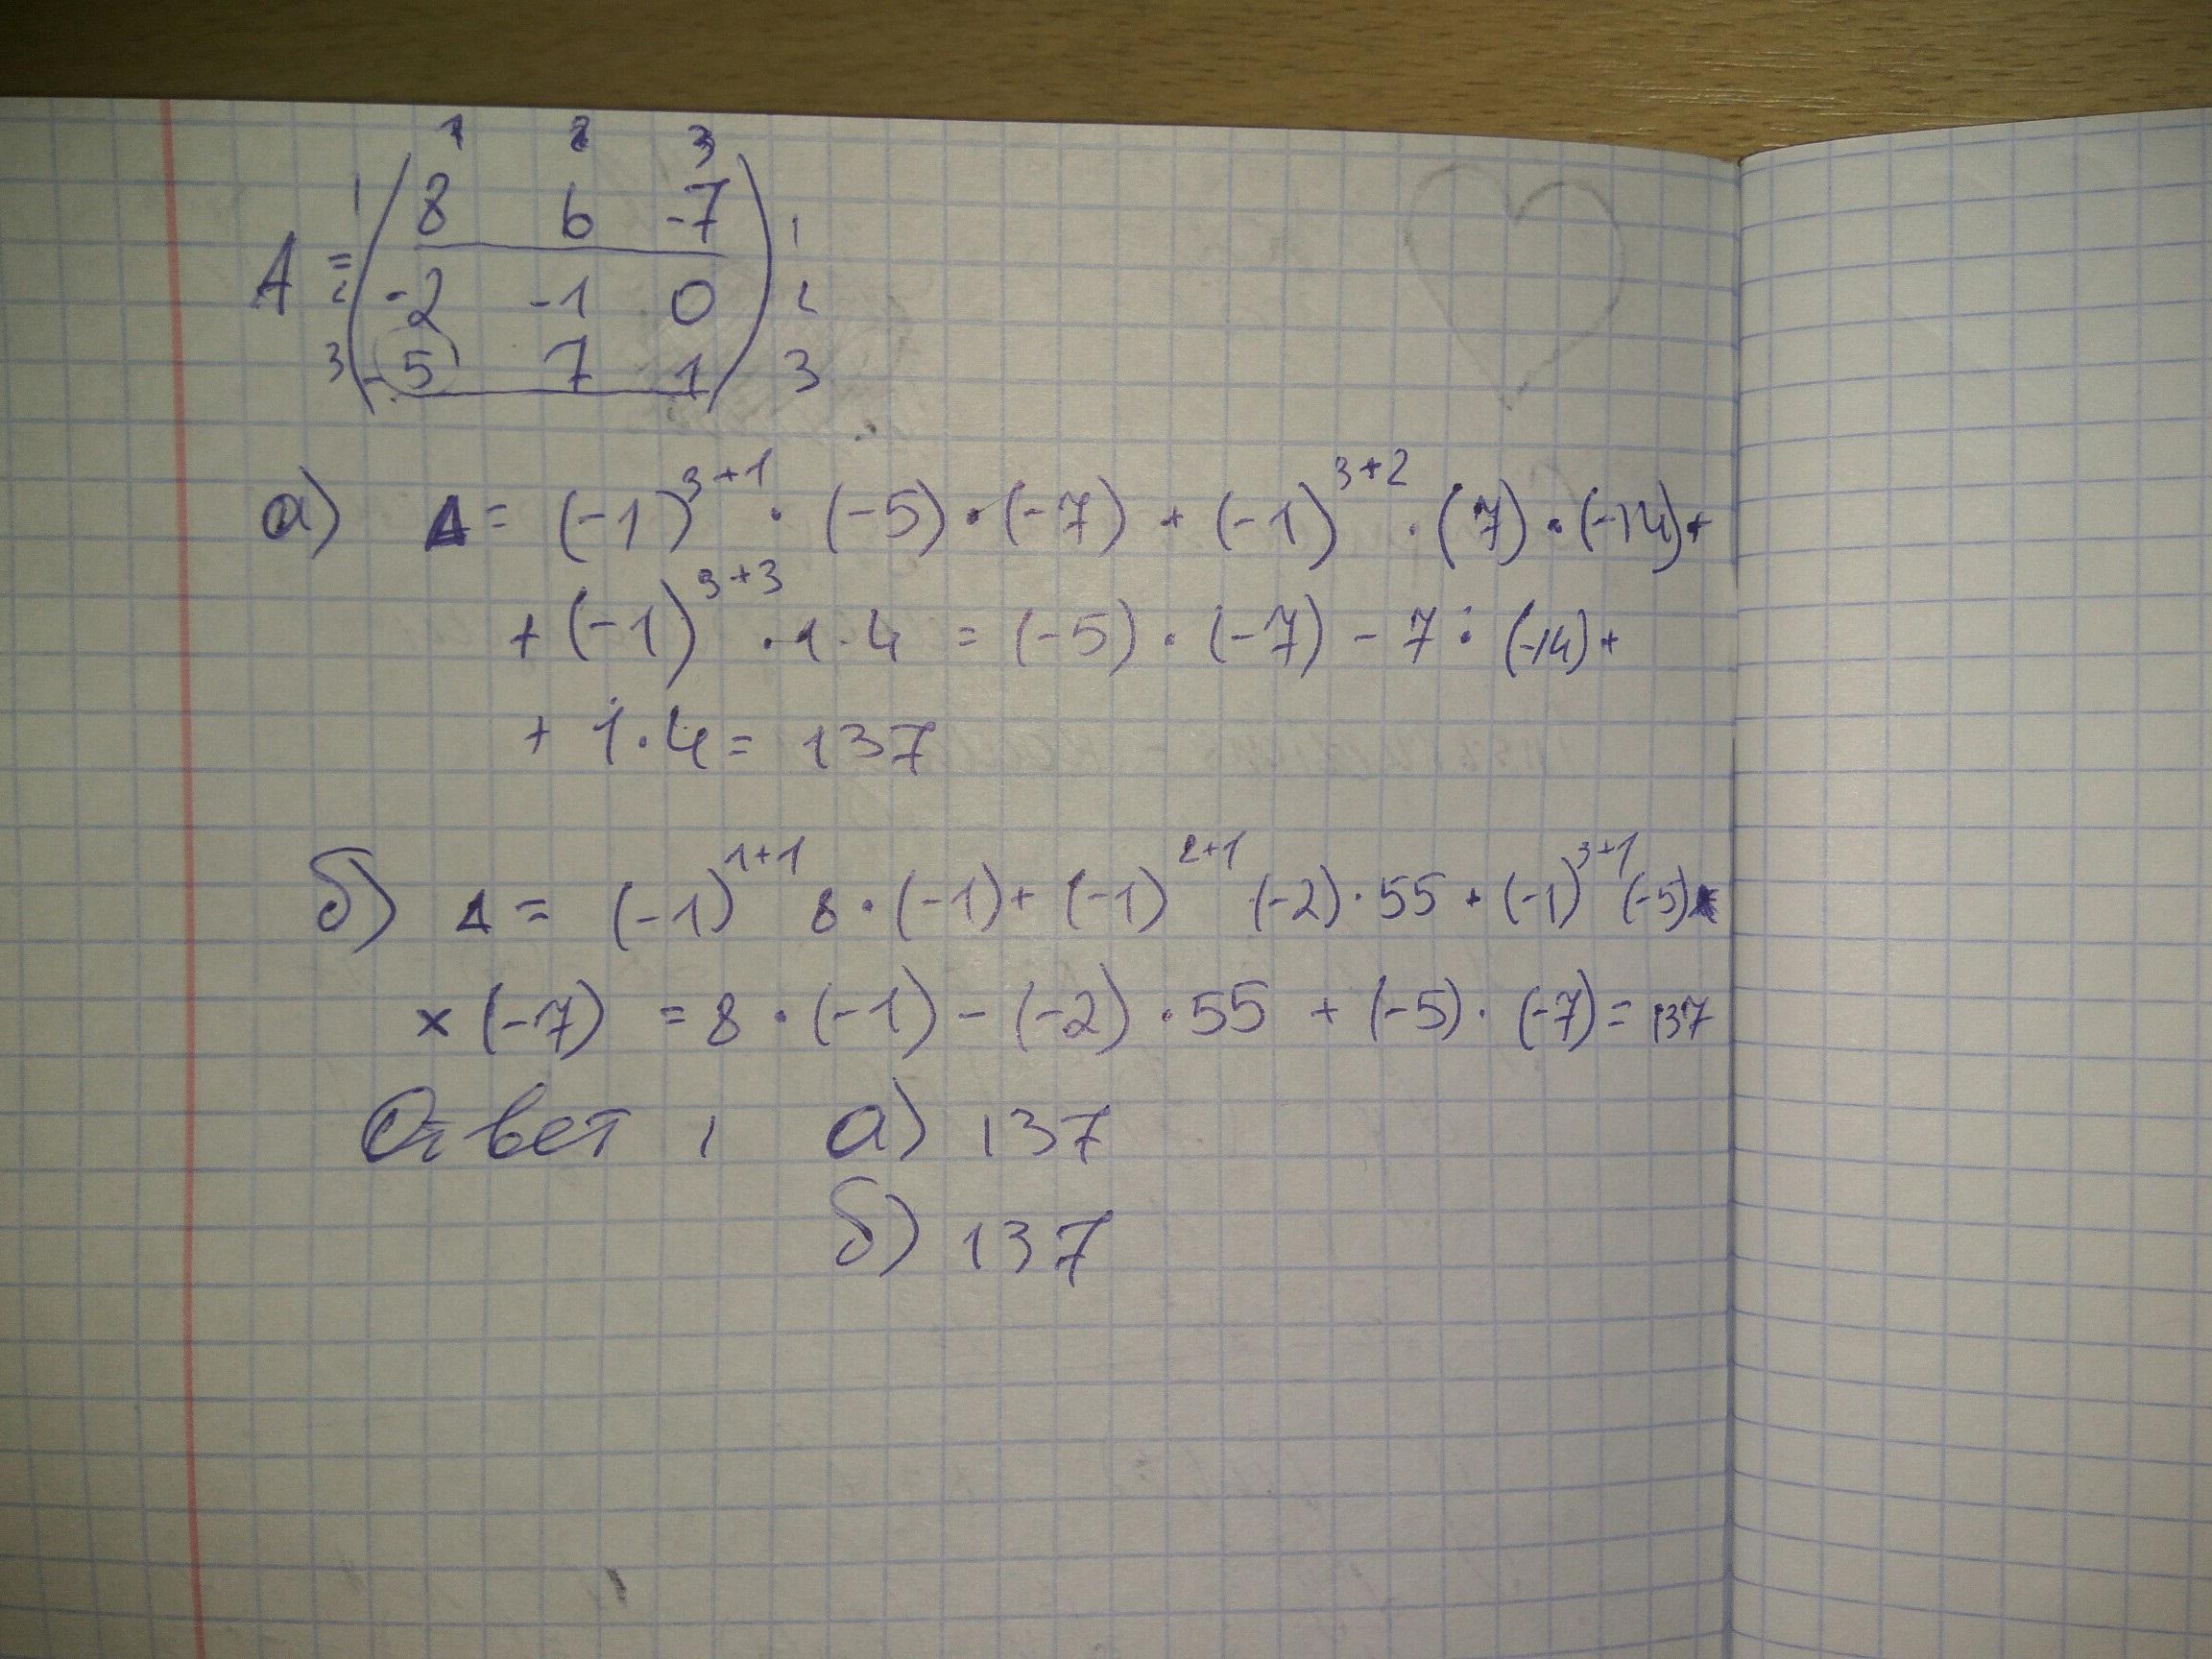 1 2 3
1 8 6 -7 1
A = 2 -2 -1 0 2
3 -5 7 1 3
а) Δ = (-1)³⁺¹ · (-5) · (-7) + (-1)³⁺² · (7) · (-14) +
+ (-1)³⁺³ · 1 · 4 = (-5) · (-7) - 7 · (-14) +
+ 1 · 4 = 137
б) Δ = (-1)¹⁺¹ 8 · (-1) + (-1)²⁺¹ (-2) · 55 + (-1)³⁺¹ (-5) ×
× (-7) = 8 · (-1) - (-2) · 55 + (-5) · (-7) = 137
Ответ : а) 137
б) 137